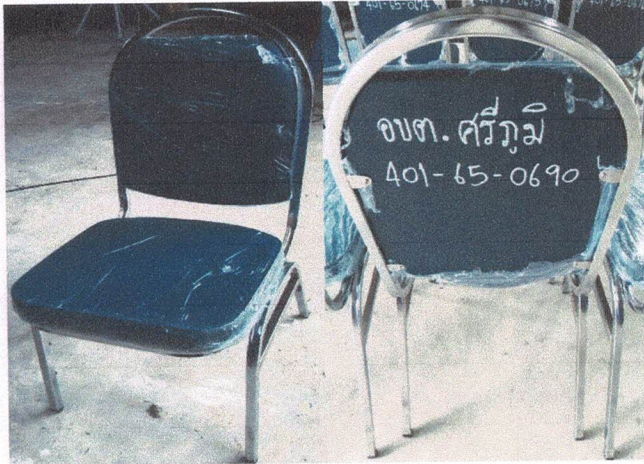 401-65-0674
อบต. ศรีภูมิ
401-65-0690